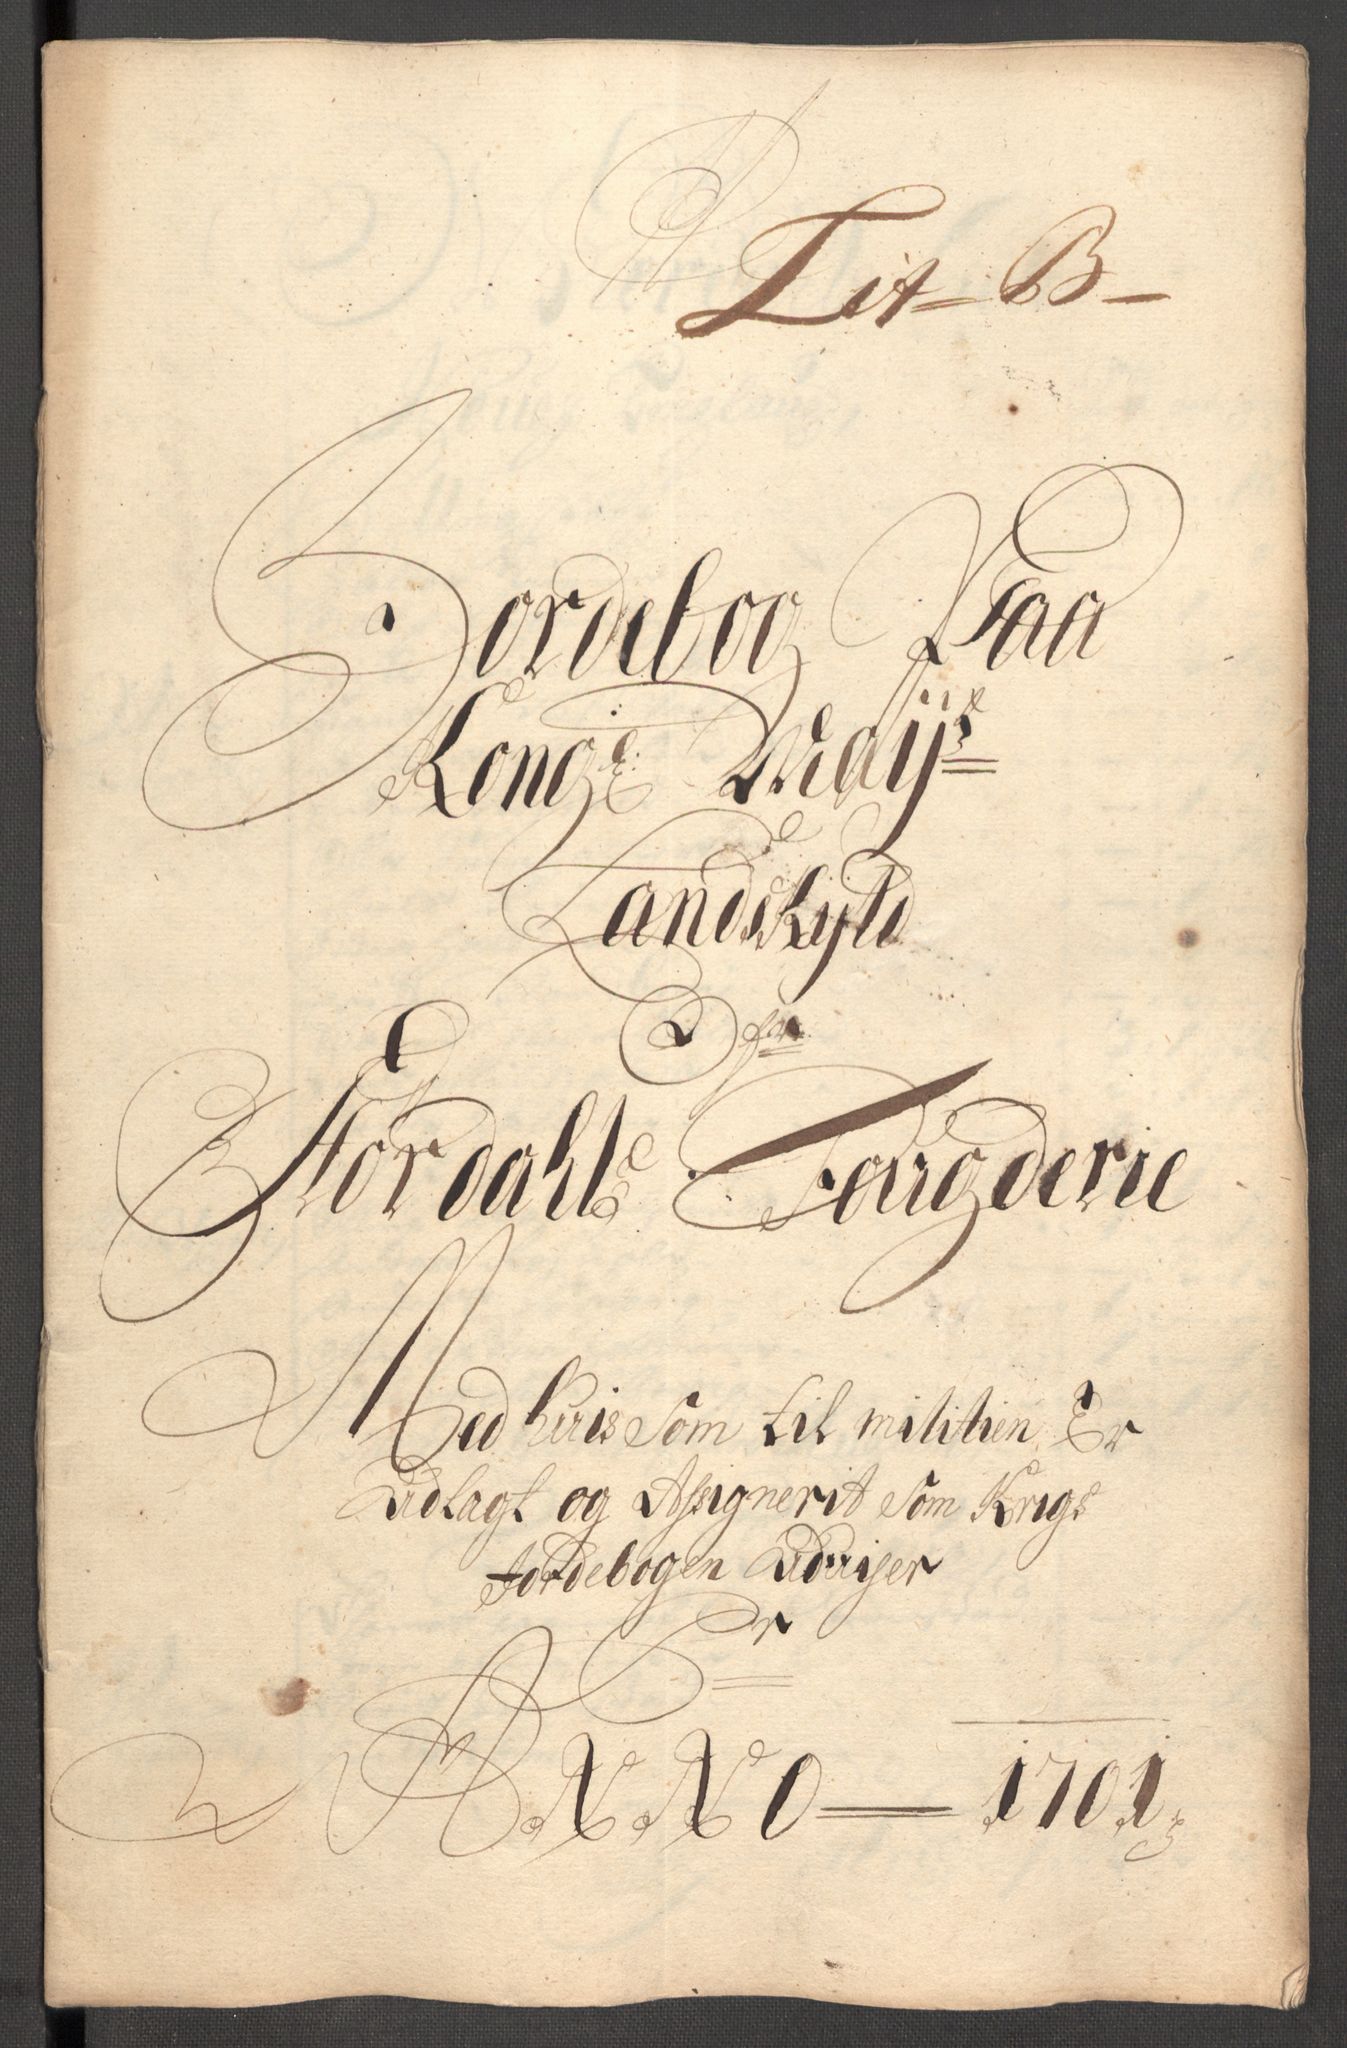 Lit B
Jordebog Paa
Kong: Maÿs
Landskyld
Stördahls Fougderie
Med huis Som til militien Er
Udlagt og Assignerit Som Krigs
Jordebogen Uduiser
Pr
ANNO 1701